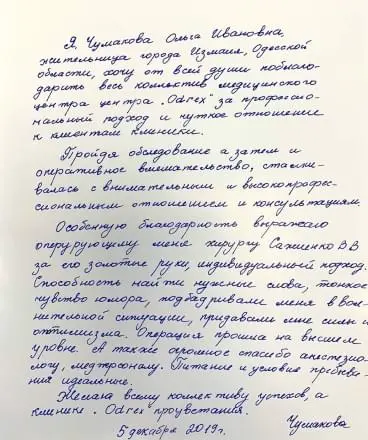 Я, Чумакова Ольга Ивановна,
жительница города Измаил, Одесской
области, хочу от всей души поблаго-
дарить весь коллектив медицинского
центра центра „Odrex" за професcио-
нальный подход и чуткое отношение
к клиентам клиники.
Пройдя обследование а затем и
оперативное вмешательство, сталки-
валась с внимательным и высокопрофес-
сиональным отношением и консультациям.
Особенную благодарность выражаю
оперурующему меня хирургу Сахиенко В В
за его золотые руки, индивидуальный подход.
Способность найти нужные слова, тонкое
чувство юмора, подбадривали меня в вол-
нительной ситуации, придавали мне силы и
оптимизма. Операция прошла на высшем
уровне. А также огромное спасибо анестезио-
логу, медперсоналу. Питание и условие пребыва-
ния идеальные.
Желаю всему коллективу успехов, а
клинике „Odrex процветания.
5 декабря 2019г. Чумакова